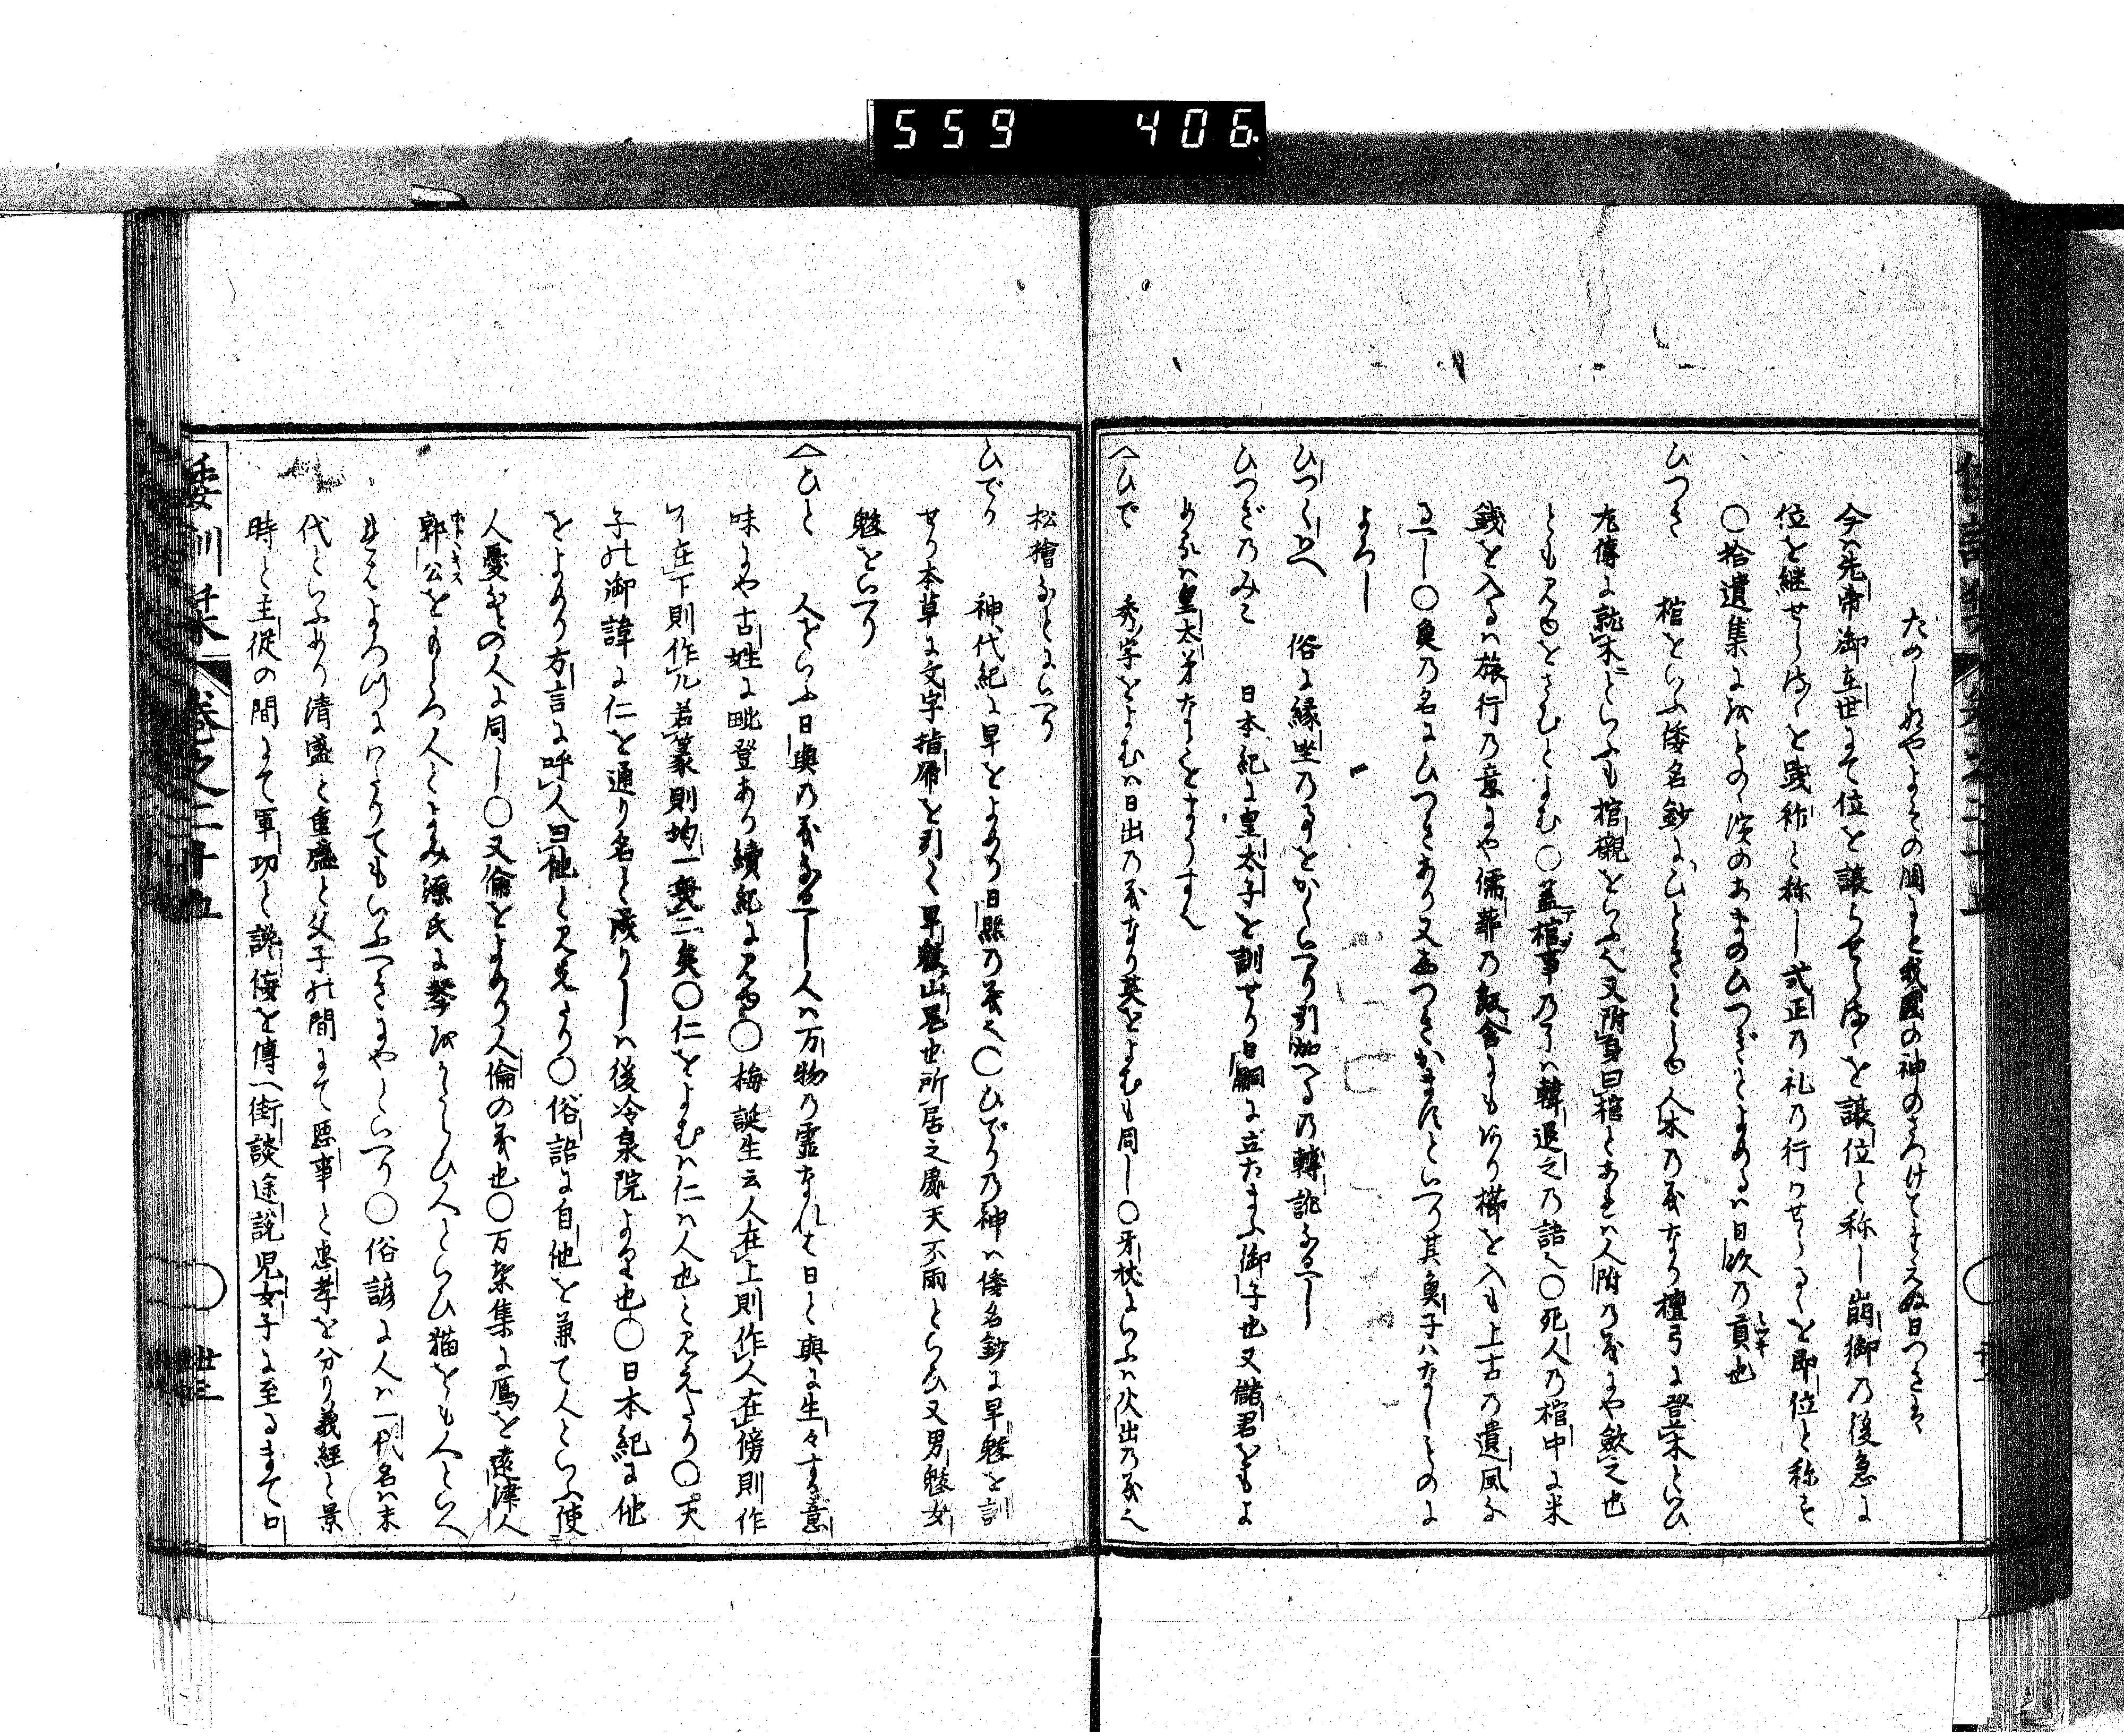 559 406
ためしれやよその国にも我国の神のさつけてたえぬ日つきは
今ハ先帝御在世にて位を譲らせらるゝを譲位と称し崩御の後急に
位を継せらるゝを践祚と称し式正の礼の行ハせらるゝを即位と称す
○拾遺集にみとの濱のあまのひつぎとよめるハ日次の貢也
ひつき 棺をいふ倭名鈔にひときともいふ人木の義なり檀弓に登木といひ
左傳に就木といふも棺櫬をいふ也又附身曰棺とあれハ人附の義にや歛之也
とも見ゆをさむとよむ○蓋棺事乃了ハ韓退之の語也○死人の棺中に米
銭を入るハ旅行の意にや儒葬の飯含にもあり櫛を入も上古の遺風な
るへし○魚の名にひつきあり又むつきかまけといへり其魚子ハなしとのに
よろし
ひつくゝへ 俗に縁坐の事をかくいへり引加へるの轉訛なるへし
ひつぎのみこ 日本紀に皇太子を訓せり日嗣に立たまふ御子也又儲君ともよ
めるハ皇太弟なとをまうす也
へひで 秀字をよむハ日出の義なり英をよむも同し○牙杖にいふハ火出の義也
松檜なとにいへり
ひでり 神代紀に旱をよめり日照の義也○ひでりの神ハ倭名鈔に旱魃を訓
せり本草に文字指帰を引く旱魃山鬼也所居之處天不雨といひ又男魃女
魃をいへり
へひと 人をいふ日與の義なるへし人ハ万物の霊なれは日と與に生々する意
味にや古姓に毗登あり續紀に見ゆ○梅誕生云人在上則作人在傍則作
イ在下則作儿若篆則均一㒫二矣○仁をよむハ仁ハ人也と見えたり○天
子の御諱に仁を通り名と成りしハ後冷泉院より也○日本紀に他
をよめり方言に呼人曰他と見えたり○俗語に自他を兼て人といふ使
人憂なとの人に同し○又倫をよめり人倫の義也○万葉集に鴈を遠津人
郭公をもとつ人とよみ源氏に琴ひくらしひ人といひ猫をも人といへ
れはよろつにわたりてもいふへきにやといへり○俗諺に人ハ一代名ハ末
代といふめり清盛と重盛と父子の間にて悪事と忠孝を分り義経と景
時と主従の間にて軍功と讒侫を傳へ街談途説児女子に至るまて口
倭訓栞 巻之二十五 廿三